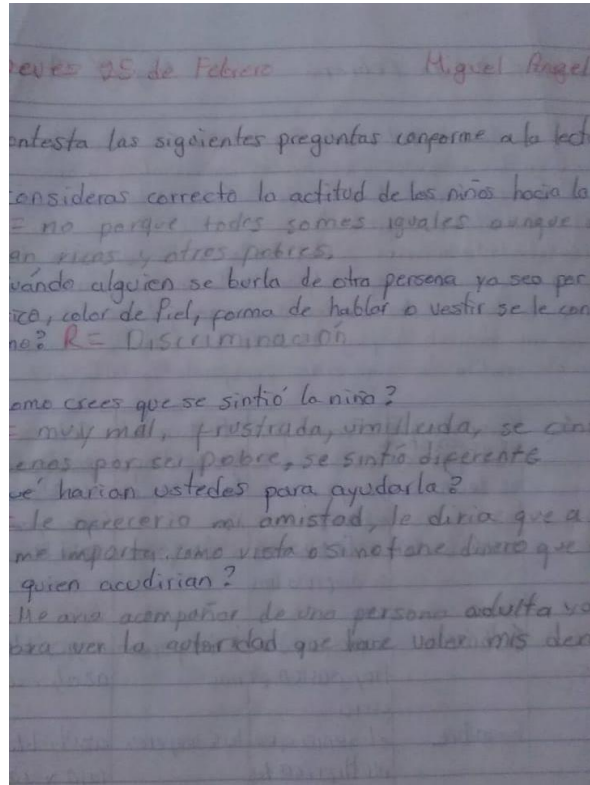 eves 25 de Febrero Miguel Angel
ontesta las sigoientes pregontas conforme a la lect
onsideras correcto la actitud de los niños hacia la
= no porque todos somos iguales aunque
an ricos y otros pobres.
uándo alguien se burla de otra persona ya sea por
ico, color de Piel, forma de hablar o vestir se le con
ne? R= Discriminación
omo crees que se sintió la niña?
= muy mal, frustrada, umillada, se cin
enos por ser pobre, se sintió diferente
ué harian ustedes para ayudarla?
le ofreceria mi amistad, le diria que a
me importa, como vista o si no tiene dinero que
quien acudirian?
Me aria acompañar de una persona adulta
ver la autoridad que hace valer mis der